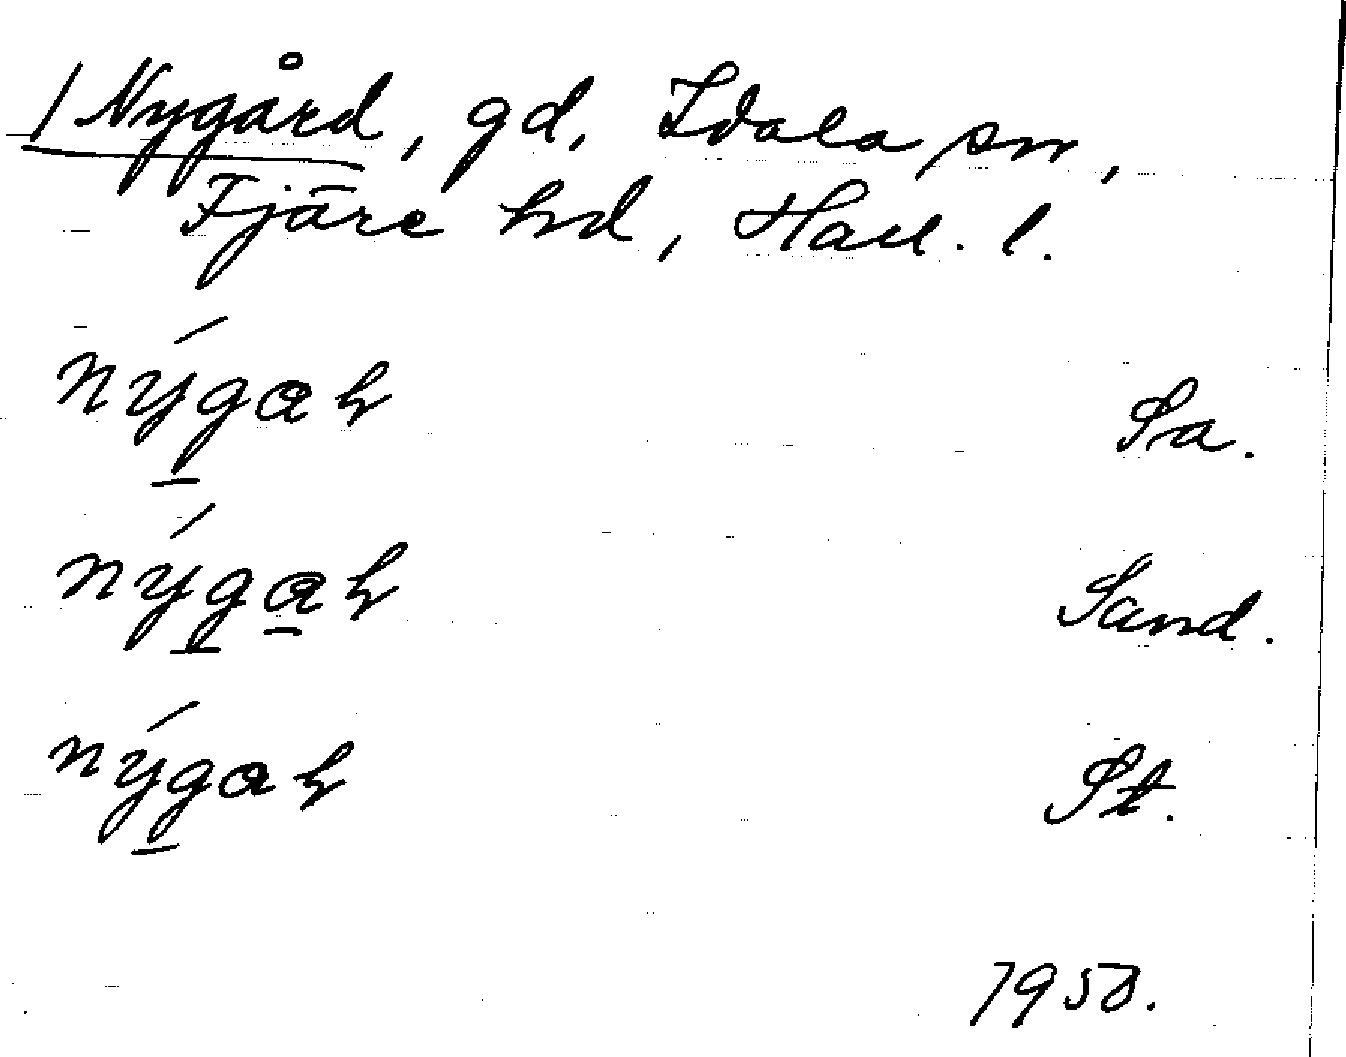 / Nygård, gd, Idala sn,
Fjäre hd, Hall. l.
nýgaꝛ Sa.
nýgaꝛ Sand.
nýgaꝛ St.
1950.